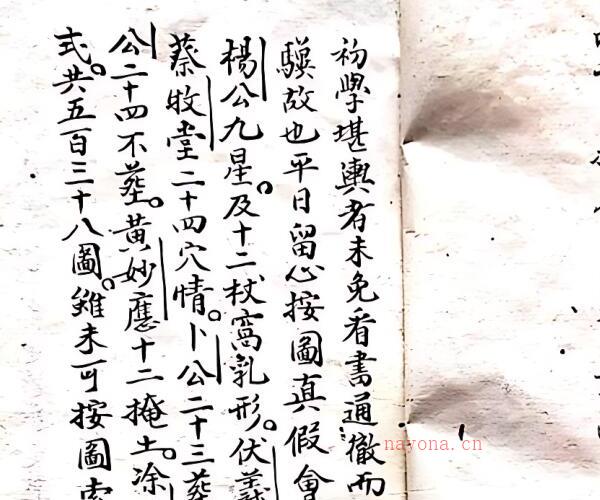 初學堪輿者未免看書通撤而
驥故也平日留心按圖真假會
楊公九星及十二杖窩乳形伏羲
蔡牧堂二十四穴情卜公二十三葬
公二十四不葬黃妙應十二掩土凃
式共五百三十八圖雖未可按圖索
nayona.cn